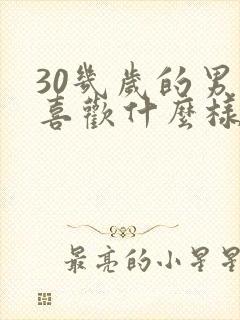 30幾歲的男
喜歡什麼樣
最亮的小星星